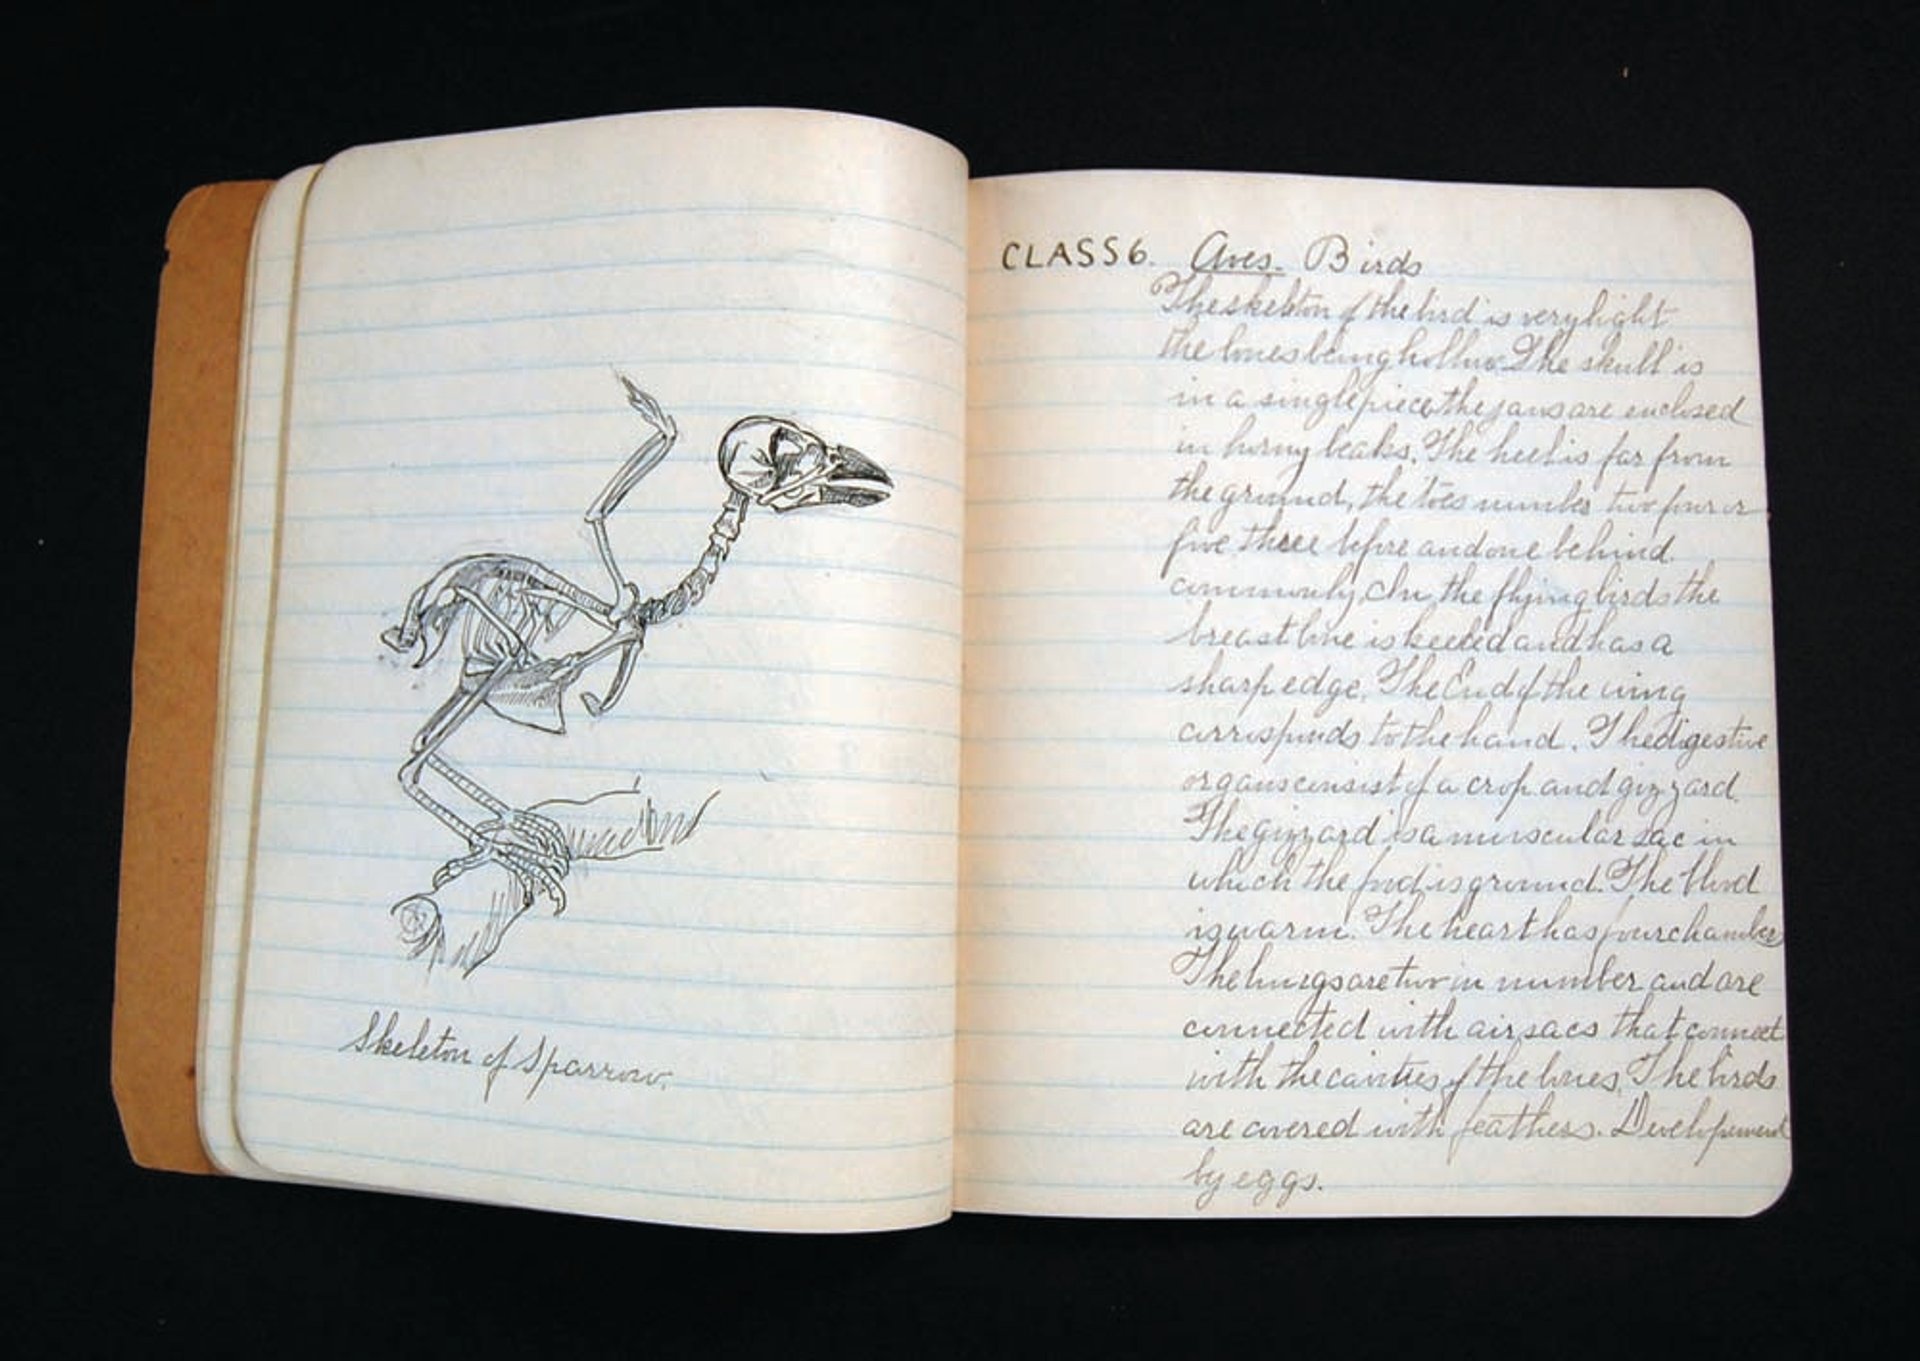 Skeleton of Sparrow.
CLASS 6. Aves. Birds
The skeleton of the bird is very light
the bones being hollow. The skull is
in a single piece, the jaws are enclosed
in horny beaks. The heel is far from
the ground, the toes number two four or
five three before and one behind.
commonly, In the flying birds the
breast bone is keeled and has a
sharp edge. The End of the wing
corresponds to the hand. The digestive
organs consist of a crop and gizzard.
The gizzard is a muscular sac in
which the food is ground. The blood
is warm. The heart has four chambers
The lungs are two in number and are
connected with air sacs that connect
with the cavities of the bones. The birds
are covered with feathers. Development
by eggs.